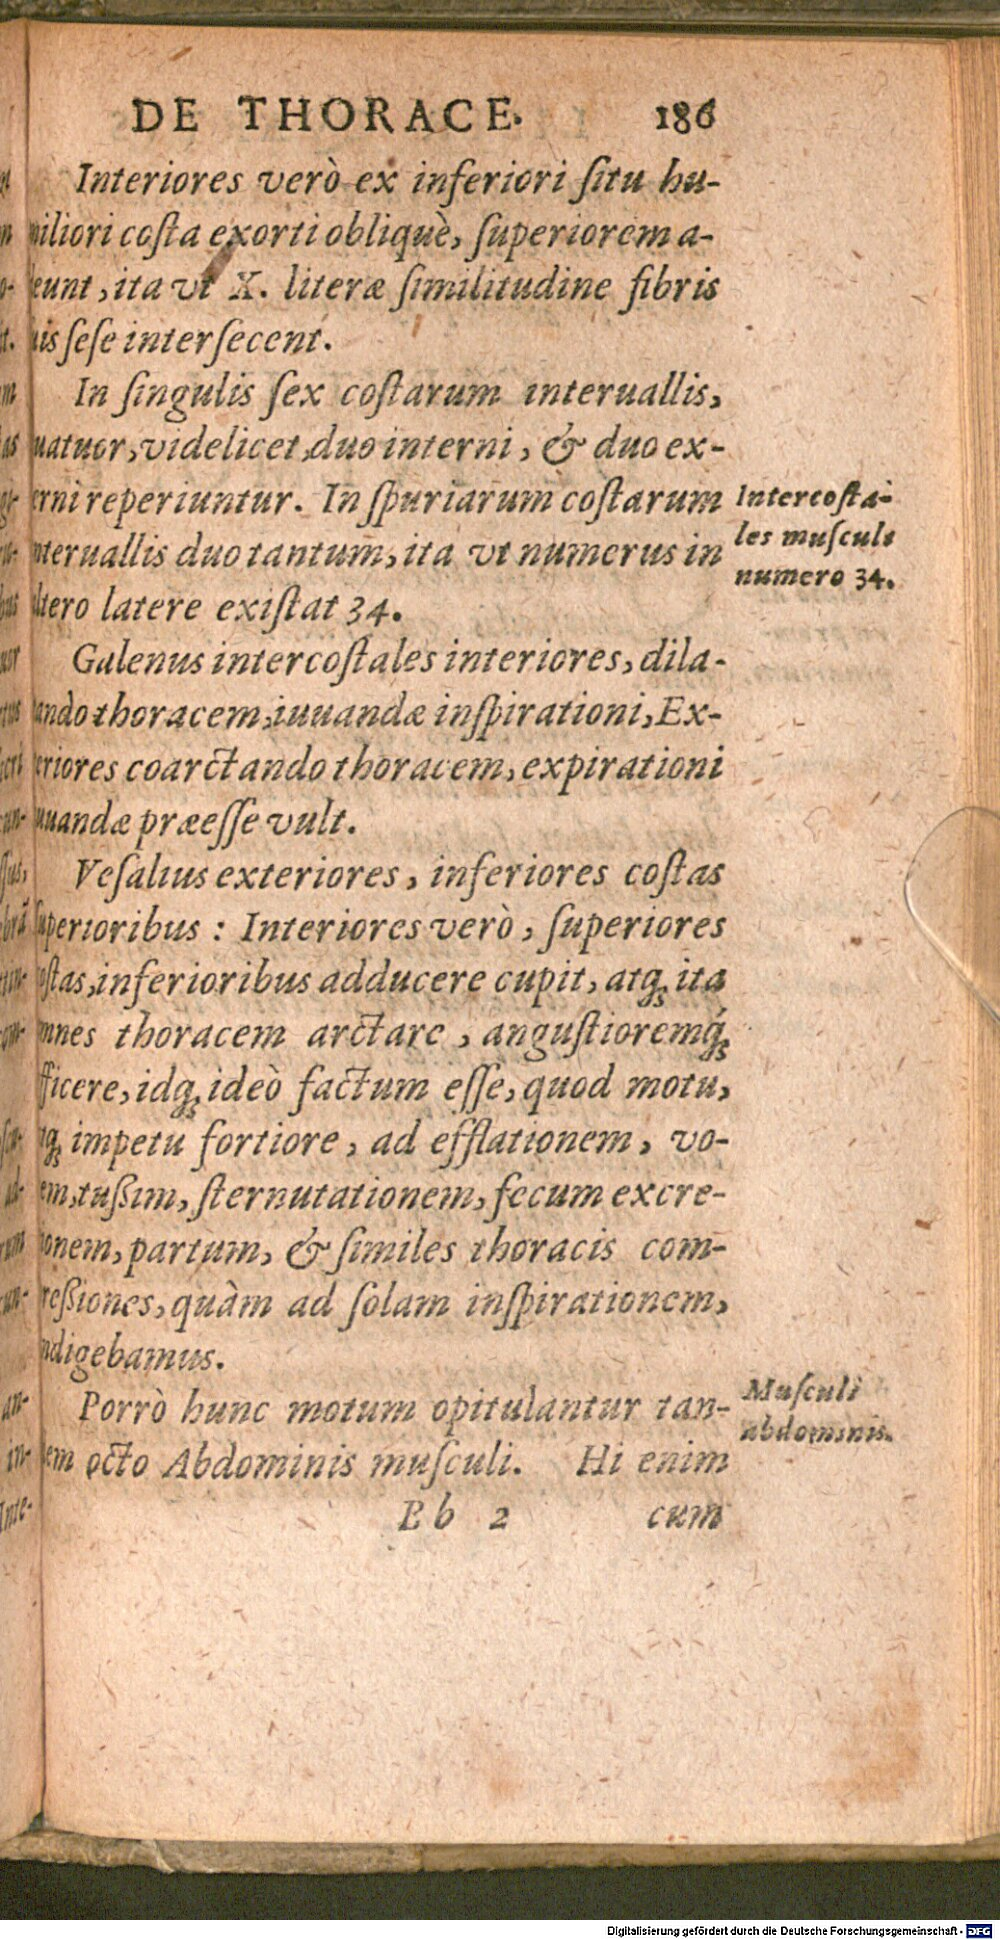 DE THORACE. 186
Interiores verò ex inferiori ſitu hu-
miliori coſta exorti obliquè, ſuperiorem a-
deunt, ita vt X. literæ ſimilitudine fibris
ſuis ſeſe interſecent.
In ſingulis ſex coſtarum interuallis,
quatuor, videlicet, duo interni, & duo ex-
terni reperiuntur. In ſpuriarum coſtarum
interuallis duo tantum, ita vt numerus in
altero latere exiſtat 34.
Intercoſta-
les muſculi
numero 34.
Galenus intercoſtales interiores, dila-
tando thoracem, iuuandæ inſpirationi, Ex-
teriores coarctando thoracem, expirationi
iuuandæ præeſſe vult.
Veſalius exteriores, inferiores coſtas
ſuperioribus : Interiores verò, ſuperiores
coſtas, inferioribus adducere cupit, atq; ita
omnes thoracem arctare, anguſtioremq́;
efficere, idq; ideò factum eſſe, quod motu,
atq; impetu fortiore, ad efflationem, vo-
cem, tußim, ſternutationem, fecum excre-
tionem, partum, & ſimiles thoracis com-
preßiones, quàm ad ſolam inſpirationem,
indigebamus.
Porrò hunc motum opitulantur tan-
dem octo Abdominis muſculi. Hi enim
Muſculi
abdominis.
Bb 2 cum
Digitalisierung gefördert durch die Deutsche Forschungsgemeinschaft - DFG